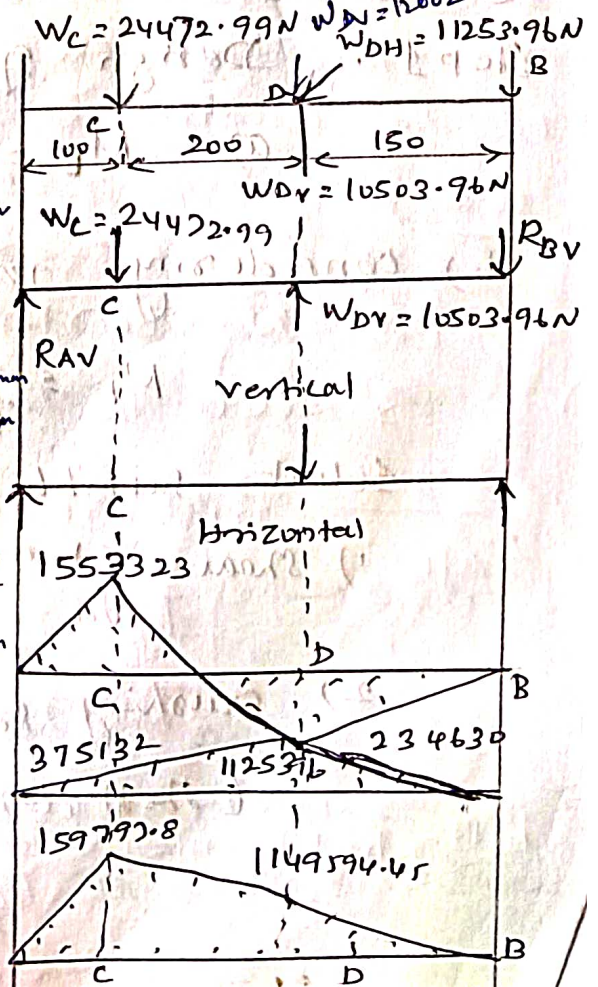 Wc = 24472.99N WDV = 12002
WDH = 11253.96N
B
D
C
100 200 150
WDV = 10503.96N
Wc = 24472.99
RBV
C
WDV = 10503.96N
RAV
vertical
C
Horizontal
1553323
D
C
B
375132 1125396 234630
159797.8
1149594.45
B
C D